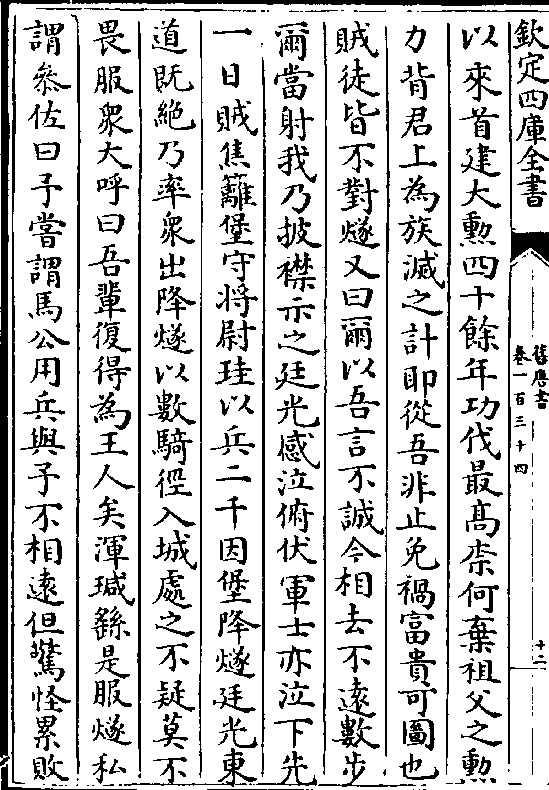 欽定四庫全書
舊唐書
卷一百三十四
十二
以來首建大勲四十餘年功伐最髙柰何棄祖父之勲
力背君上為族滅之計耶從吾非止免禍富貴可圖也
賊徒皆不對燧又曰爾以吾言不誠今相去不遠數步
爾當射我乃披襟示之廷光感泣俯伏軍士亦泣下先
一日賊焦籬堡守將尉珪以兵二千因堡降燧廷光東
道既絶乃率衆出降燧以數騎徑入城處之不疑莫不
畏服衆大呼曰吾輩復得為王人矣渾瑊繇是服燧私
謂叅佐曰予嘗謂馬公用兵與予不相遠但驚怪累敗